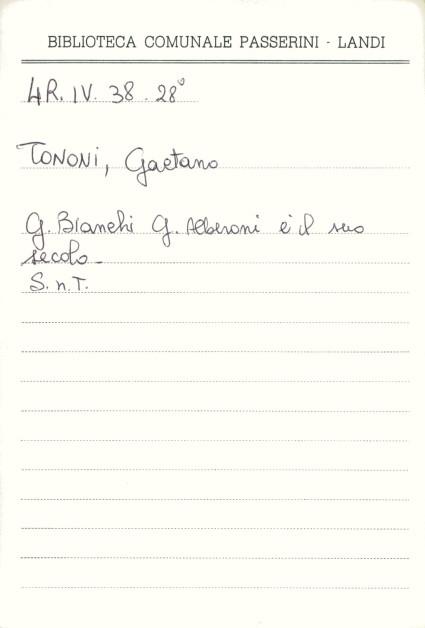 BIBLIOTECA COMUNALE PASSERINI - LANDI
4R. IV. 38. 28°
TONONI, Gaetano
G. Bianchi G. Alberoni e il suo
secolo -
S. n. T.